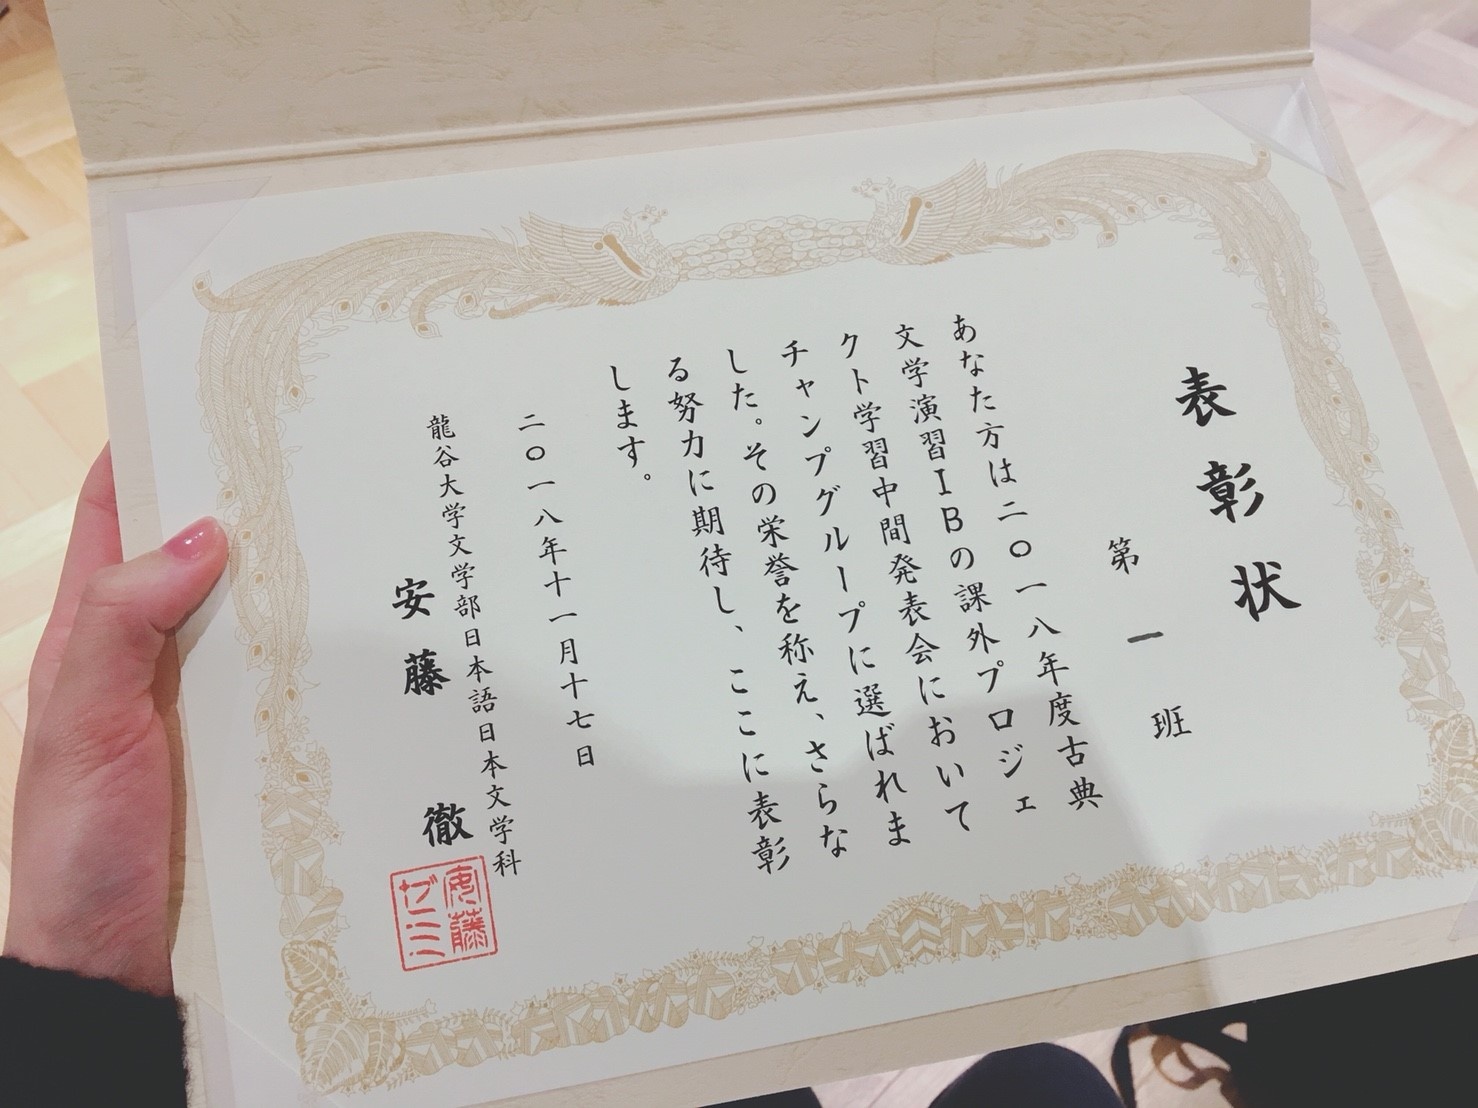 表彰状
第一班
あなた方は二〇一八年度古典
文学演習ⅠBの課外プロジェ
クト学習中間発表会において
チャンプグループに選ばれま
した。その栄誉を称え、さらな
る努力に期待し、ここに表彰
します。
二〇一八年十一月十七日
龍谷大学文学部日本語日本文学科
安藤 徹
安藤
ゼミ